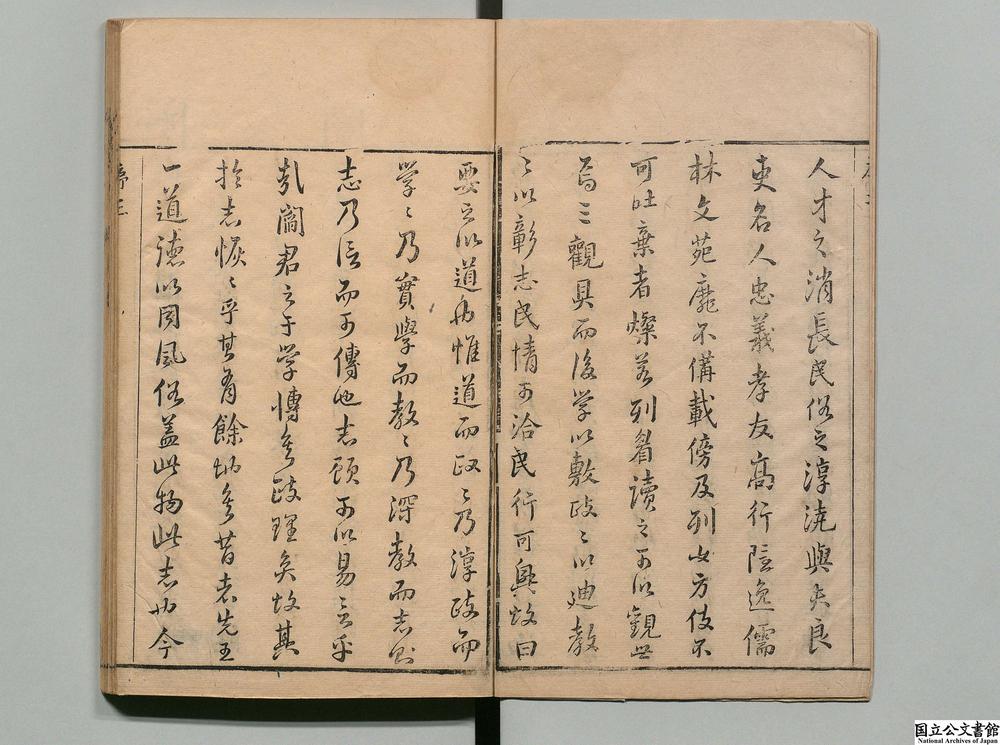 人才之消長民俗之淳澆與夫良
吏名人忠義孝友高行隱逸儒
林文苑靡不備載傍及列女方伎不
可吐棄者燦若列眉讀之可以觀世
焉三觀具而後学以敷政〻以迪教
〻以彰志民情可洽民行可興故曰
要之以道也惟道而政〻乃淳政而
学〻乃實學而教〻乃深教而志則
志乃信而可傳也志顧可以易言乎
哉閻君之于学博矣政理矣故其
於志恢〻乎其有餘也矣昔者先王
一道德以同風俗盖此物此志也今
序三
国立公文書館
National Archives of Japan